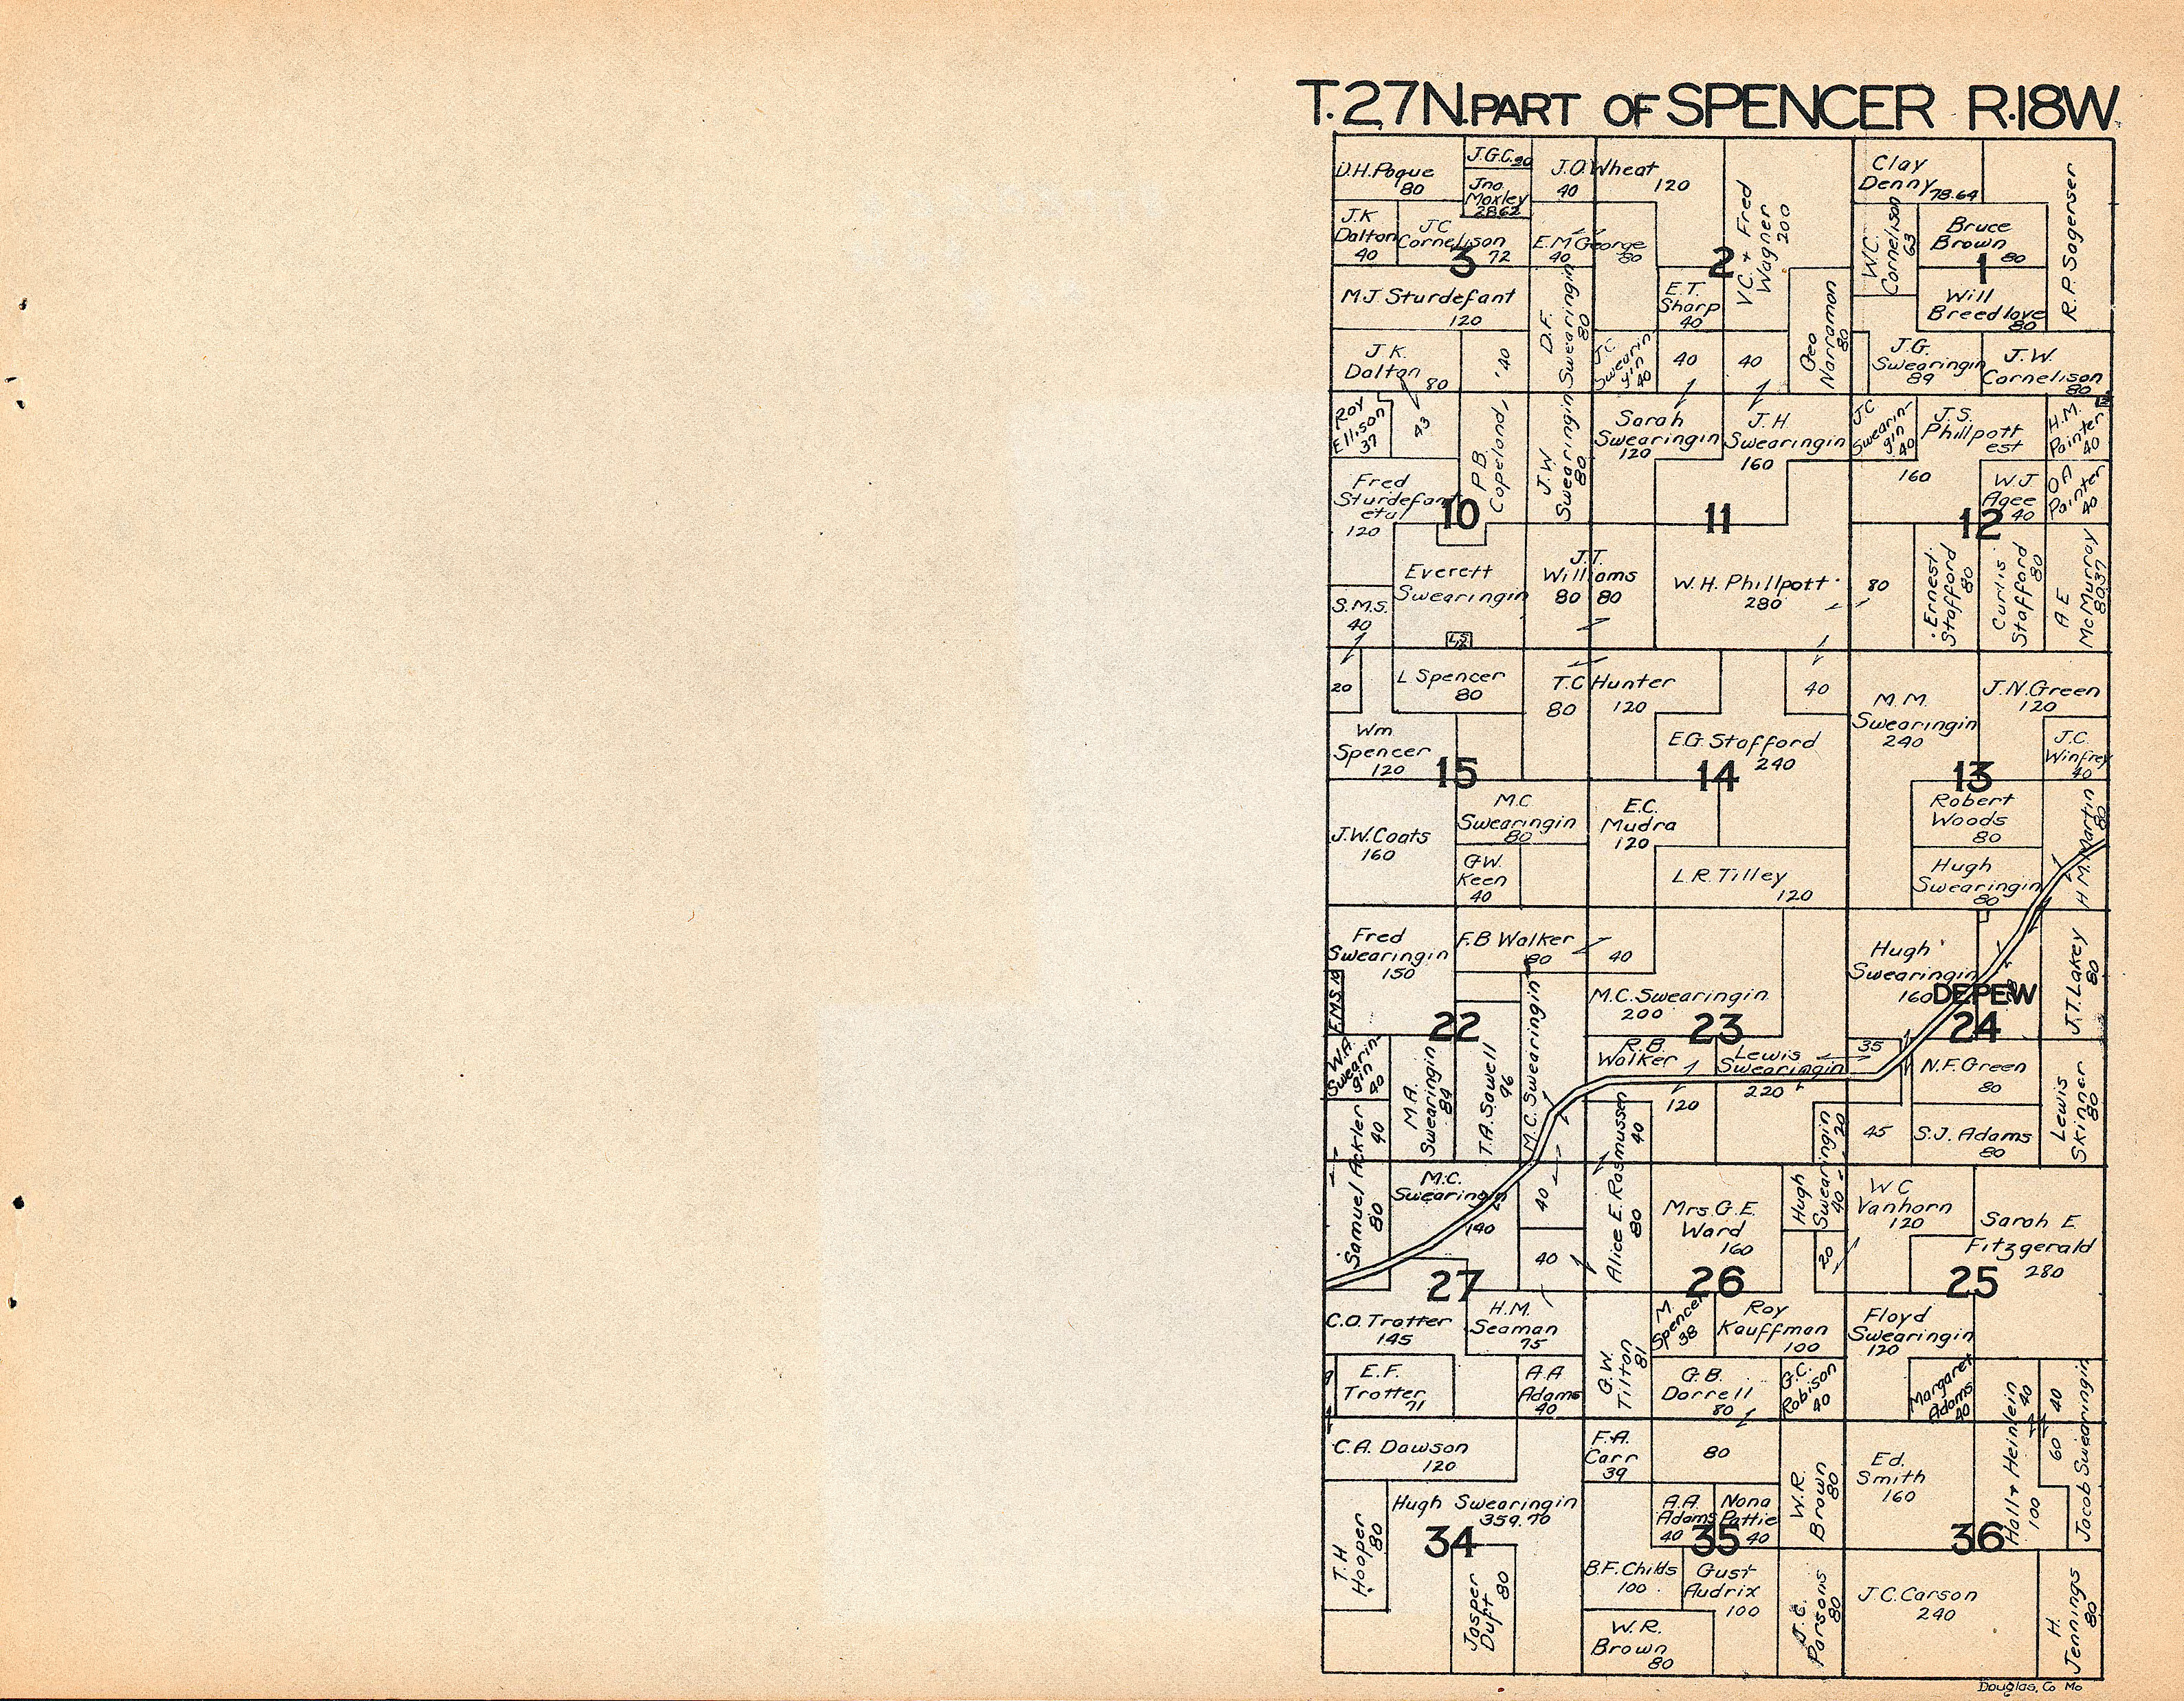 T.27N. PART OF SPENCER R.18W.
D.H. Pogue
80
J.G.C. 20
Jno.
Moxley
28.62
J.O. Wheat
40
120
V.C. + Fred
Wagner
200
Clay
Denny 78.64
R.P. Sagerser
J.K.
Dalton
40
J.C.
Cornelison
72
3
E.M. George
40
80
2
W.C.
Cornelison
63
Bruce
Brown
80
1
M.J. Sturdefant
120
D.F.
Swearingin
80
E.T.
Sharp
40
Geo
Narramon
80
Will
Breedlove
80
J.K.
Dalton
80
40
J.C.
Swearin
gin
40
40
40
J.G.
Swearingin
89
J.W.
Cornelison
80
Roy
Ellison
37
43
P.B.
Copeland
J.W.
Swearingin
80
Sarah
Swearingin
120
J.H.
Swearingin
160
J.C.
Swearin-
gin
40
J.S.
Phillpott
est
160
H.M.
Painter
40
Fred
Sturdefant
etal
120
10
11
W.J.
Agee
40
12
O.A.
Painter
40
Everett
Swearingin
J.T.
Williams
80 80
W.H. Phillpott
280
80
Ernest
Stafford
80
Curtis
Stafford
80
A.E.
McMurray
80.37
S.M.S.
40
L.S.
20
L Spencer
80
T.C. Hunter
80
120
40
M.M.
Swearingin
240
J.N. Green
120
Wm
Spencer
120
15
E.G. Stafford
240
14
J.C.
Winfrey
40
13
J.W. Coats
160
M.C.
Swearingin
80
E.C.
Mudra
120
Robert
Woods
80
H.M. Martin
80
G.W.
Keen
40
L.R. Tilley
120
Hugh
Swearingin
80
Fred
Swearingin
150
F.B. Walker
80
40
Hugh
Swearingin
160
DEPEW
J.T. Lakey
80
E.M.S. 10
22
M.C. Swearingin
M.C. Swearingin
200
23
24
W.A.
Swearin-
gin
40
M.A.
Swearingin
84
T.A. Sawell
96
R.B.
Walker
120
Lewis
Swearingin
220
35
N.F. Green
80
Lewis
Skinner
80
Samuel Ackler
40
80
Alice E. Rasmussen
40
80
Hugh
Swearingin
20
40
45
S.J. Adams
80
M.C.
Swearingin
140
40
40
Mrs. G.E.
Ward
160
20
W.C.
Vanhorn
120
Sarah E.
Fitzgerald
280
27
26
25
C.O. Trotter
145
H.M.
Seaman
75
G.W.
Tilton
81
M.
Spencer
38
Roy
Kauffman
100
Floyd
Swearingin
120
E.F.
Trotter
71
A.A.
Adams
40
G.B.
Darrell
80
G.C.
Robison
40
Margaret
Adams
40
Hall + Heinlein
40
100
40
60
Jacob Swearingin
C.A. Dawson
120
F.A.
Carr
39
80
W.R.
Brown
80
Ed.
Smith
160
T.H.
Hooper
80
Hugh Swearingin
359.70
34
A.A.
Adams
40
Nona
Pattie
40
35
36
Jasper
Duft
80
B.F. Childs
100
Gust
Audrix
100
J.C.
Parsons
80
J.C. Carson
240
H.
Jennings
80
W.R.
Brown
80
Douglas, Co Mo